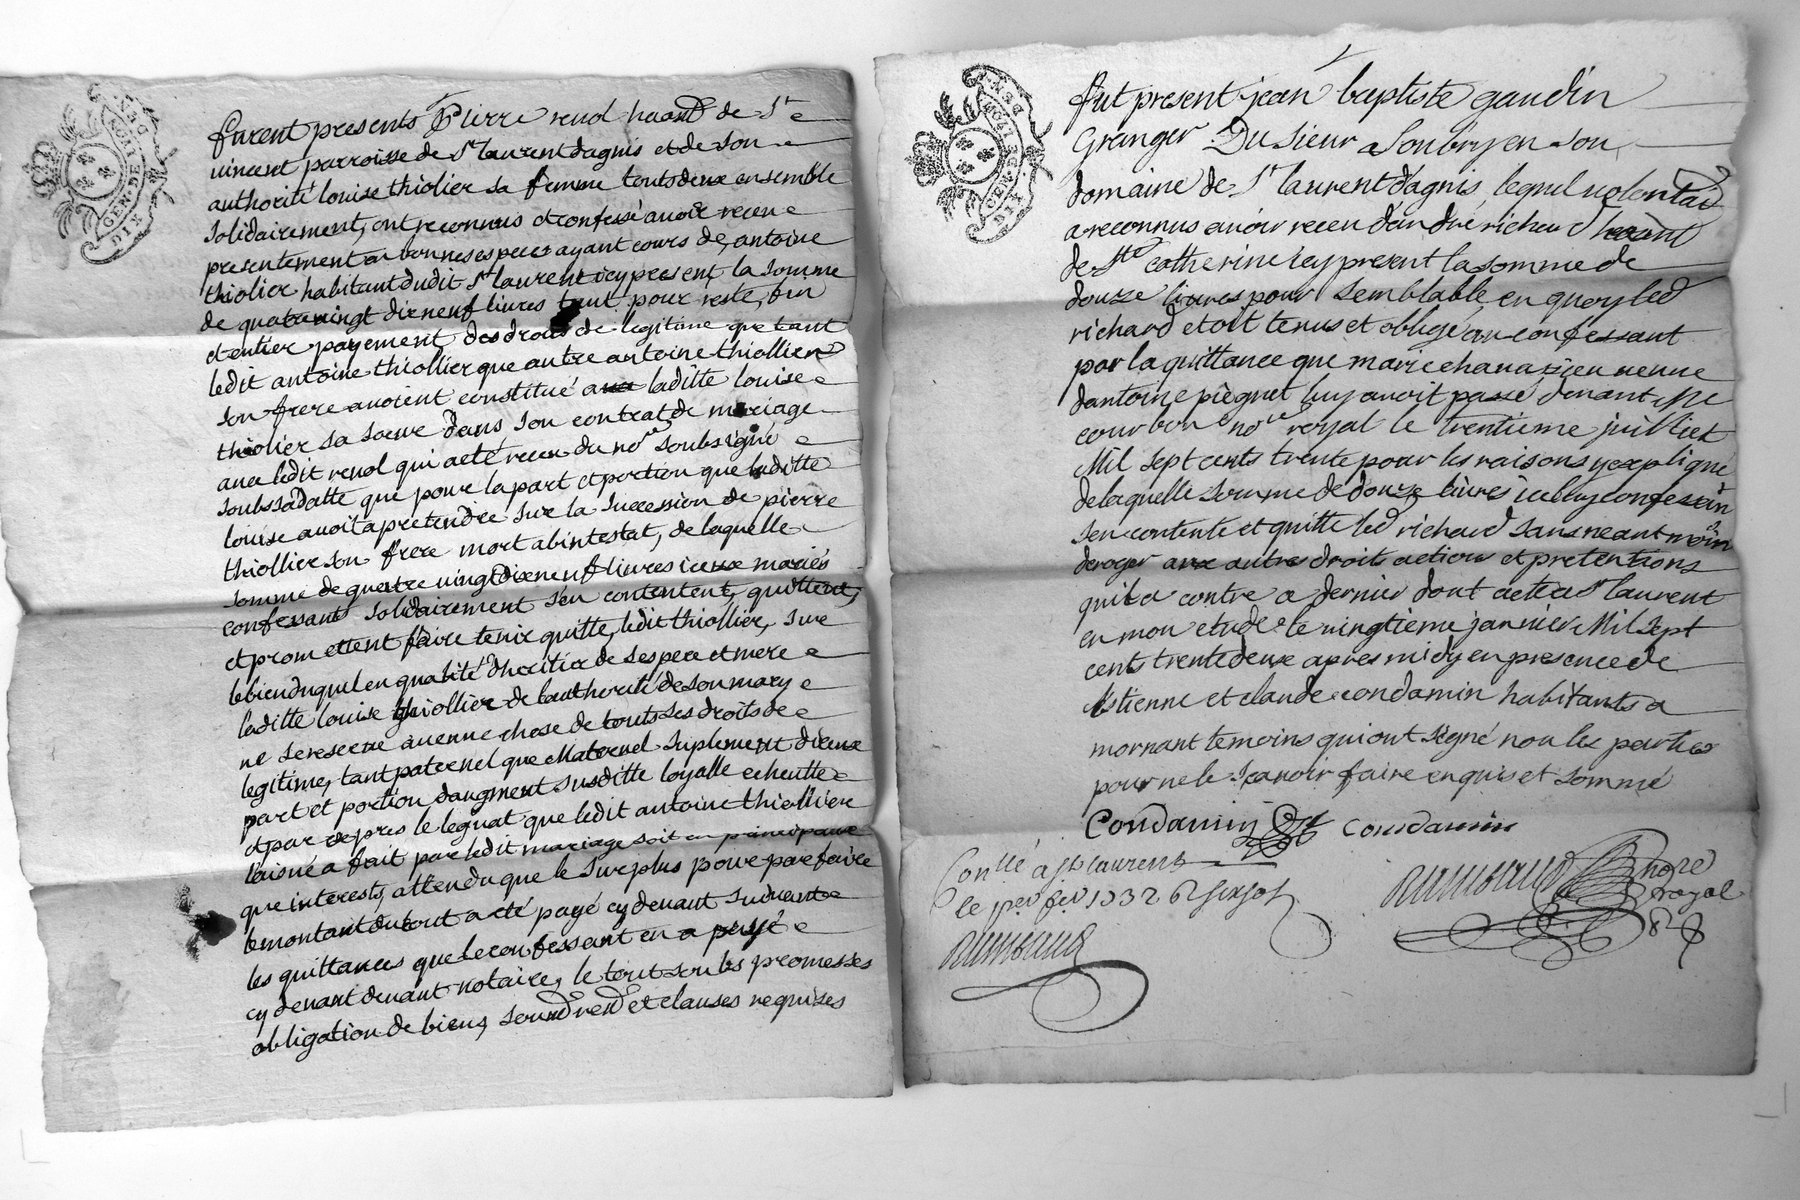 GEN DE LYON
DEN
DIX
furent presents Pierre renol habant de St
vincent parroisse de St laurent dagnis et de son
authorité louise thiolier sa femme touts deux ensemble
solidairement, ont reconnus et confessé avoir receu
presentement en bonnes especes ayant cours de, antoine
thiolier habitant dudit St laurent icy present, la somme
de quatrevingt dixneuf livres tant pour reste, fin
et entier payement, des droits de legitime que tant
ledit antoine thiollier que autre antoine thiollier
son frere avoient constitué a laditte louise
thiolier sa soeur dans son contrat de mariage
avec ledit renol qui a eté receu du nore soubsigné
soubs sa datte que pour la part et portion que laditte
louise avoit a pretendre sur la succession de pierre
thiollier son frere mort abintestat, de laquelle
somme de quatre vingt dixneuf livres iceux mariés
confessants solidairement s'en contentent, quittent,
et promettent faire tenir quitte, ledit thiollier, sur
le bien duquel en qualité d'heritier de ses pere et mere
laditte louise thiollier de l'authorité de son mary
ne se reserve aucune chose de touts ses droits de
legitime, tant paternel que Maternel suplement d'iceux
part et portion d'augment susditte loyalle echeutte
et par expres le leguat que ledit antoine thiollier
l'aisné a fait par ledit mariage soit en principaux
que interests, attendu que le surplus pour parfaire
le montant du tout a eté payé cy devant suivant
les quittances que le confessant en a passé
cy devant devant notaire, le tout sou les promesses
obligation de biens, soumd rend et clauses requises
GEN DE LYON
DEN
DIX
fut present jean baptiste gaudin
Granger Du sieur Soubry en son
domaine de St laurent d'agnis, lequel volontad
a reconnus avoir receu d'andré richard habant
de Ste catherine icy present la somme de
douze livres pour semblable en quoy led
richard etoit tenus et obligé au confessant
par la quittance que marie chavazieu veuve
d'antoine piegnet luy avoit passé devant Me
courbon nore royal le trentieme juilliet
Mil sept cents trente pour les raisons y expliqué
de laquelle somme de douze livres icelluy confessant
s'en contente et quitte led richard sans neantmoins
deroger aux autres droits actions et pretentions
quil a contre ce dernier dont acte a St laurent
en mon etude le vingtieme janvier Mil sept
cents trente deux apres midy en presence de
Estienne et claude condamin habitants a
mornant temoins qui ont signé non les parties
pour ne le sçavoir faire enquis et sommé
Condamin Condamin
Conllé a St laurent
le 1er fer 1732
nore
royal